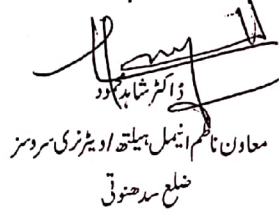 ڈاکٹر شاہد محمود
معاون ناظم انیمل ہیلتھ / ویٹرنری سروسز
ضلع سدھنوتی